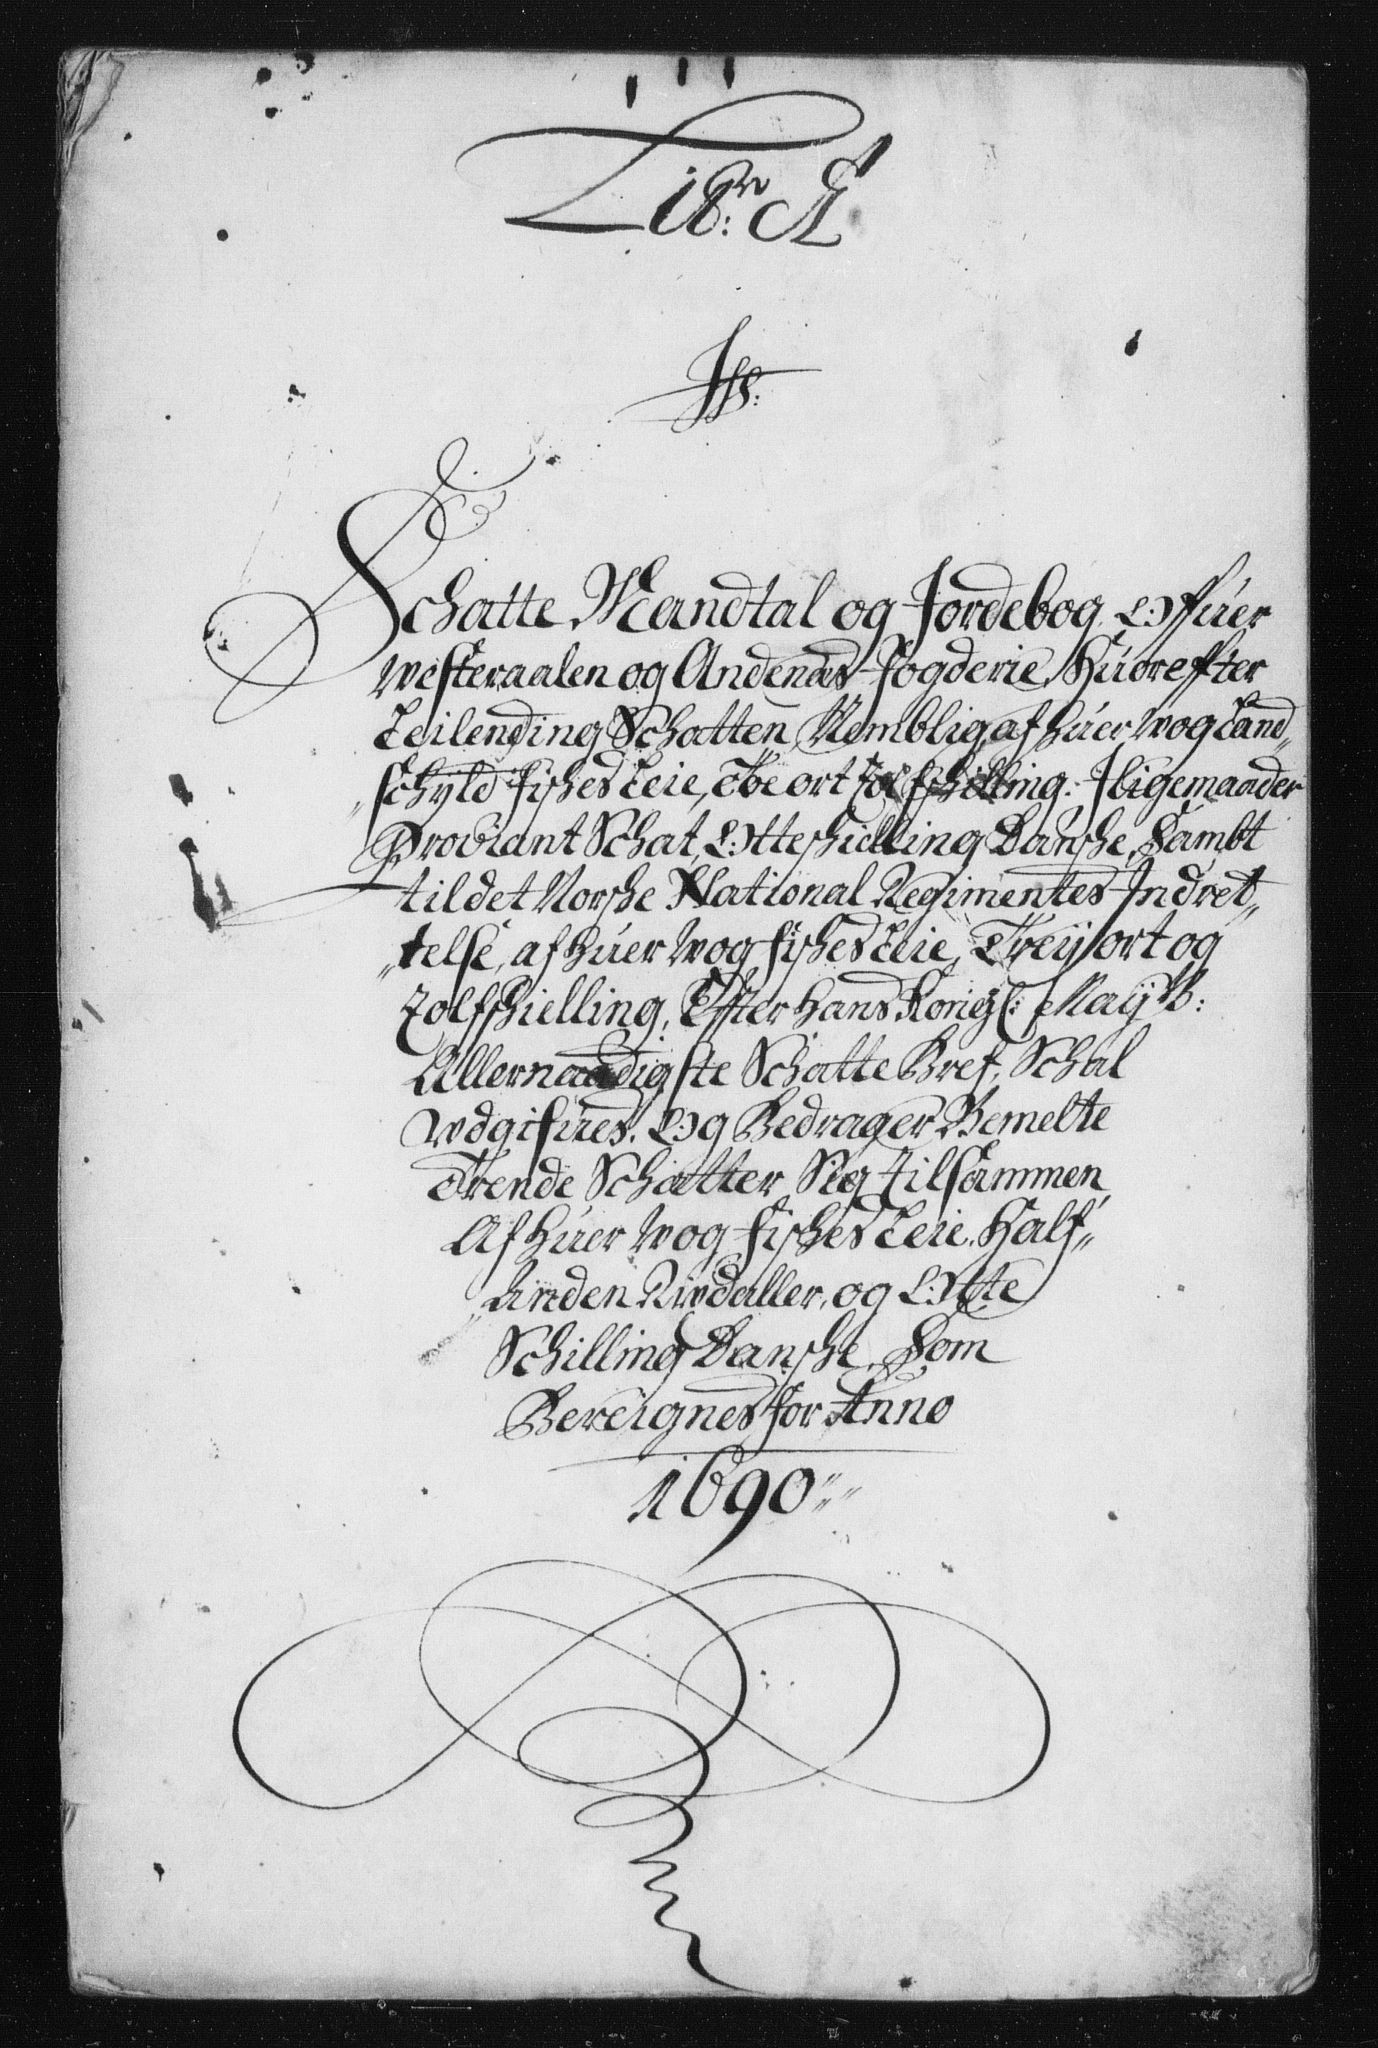 Litr: A
Schatte Mandtal og Jordebog Offuer
Westeraalen og Andenæs Fogderie, Huoreffter
Leilending Schatten, Nemblig af huer wog Land„
„schyld Fisches Leie, Toe ort Tolf schilling. Iligemaader
Proviant Schat, Otte schielling Dansche, Sambt
til det Norsche National Regimentes Indret„
„telse, af huer wog fisches Leie, Treij ort og
Tolfschielling, Effter hans Konigl: Maijts:
Allernaadigste Schatte Bref, Schal
Wdgifues. Og Bedrager Bemelte
Trende Schatter Sig tilsammen
Af huer wog Fisches Leie, Half„
„Anden Rixdaller, og Otte
Schilling Dansche, Som
Bereignes for Anno
1690